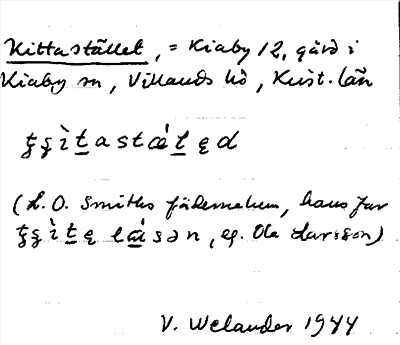 Kittastället, = Kiaby 12, gård i
Kiaby sn, Villands hd, Krist. län
ţşìt̲astǽt̲ęd
(L. O. Smiths fädernehem, hans far
ţşìt̲ę lǽ̲sən, eg. Ola Larsson)
V. Welander 1944